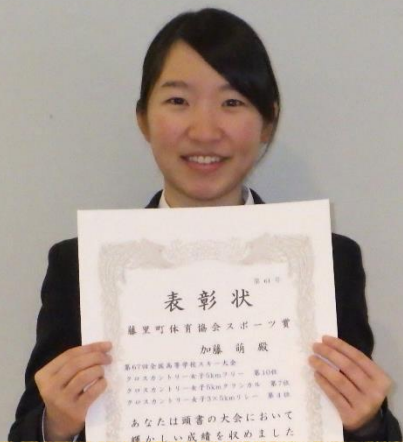 第63号
表彰状
藤里町体育協会スポーツ賞
加藤 萌 殿
第67回全国高等学校スキー大会
クロスカントリー女子5kmフリー 第10位
クロスカントリー女子5kmクラシカル 第7位
クロスカントリー女子3×5kmリレー 第4位
あなたは頭書の大会において
輝かしい成績を収めました